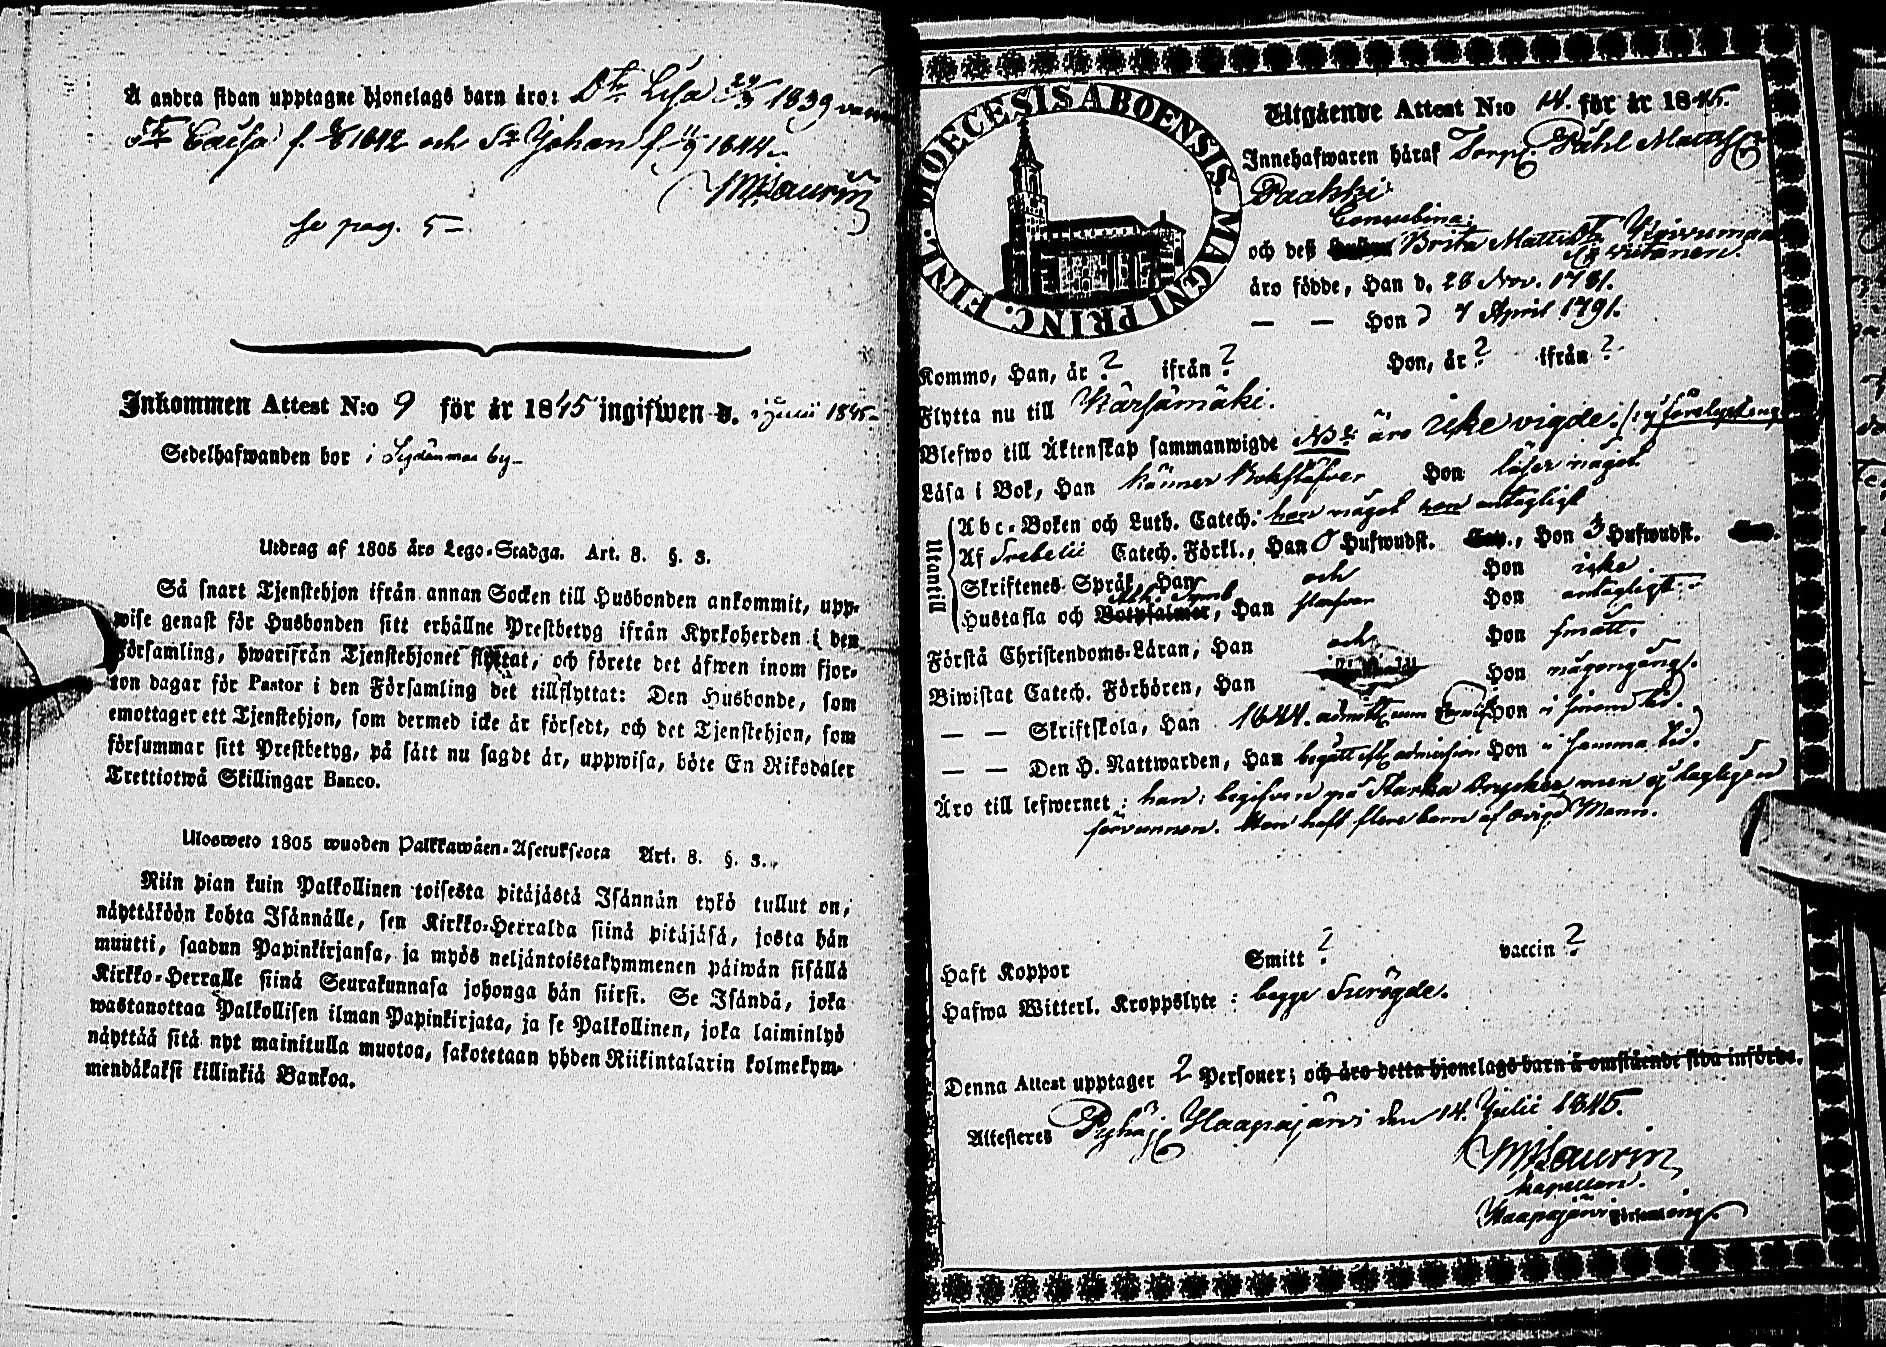 Å andra sidan upptagne hjonelags barn äro: Dtr Lisa 24/3 1839
Dtr Caisa f. 1842 och Sn Johan f. 1844.
WLaurin
se pag. 5
Inkommen Attest N:o 9 för år 1845 ingifwen d. Julii 1845
Sedelhafwanden bor i Sydänmaa by
Utdrag af 1805 års Lego-Stadga. Art. 8. §. 3.
Så snart Tjenstehjon ifrån annan Socken till Husbonden ankommit, upp-
wise genast för Husbonden sitt erhållne Prestbetyg ifrån Kyrkoherden i den
Församling, hwarifrån Tjenstehjonet flyttat, och förete det äfwen inom fjor-
ton dagar för Pastor i den Församling det tillflyttat: Den Husbonde, som
emottager ett Tjenstehjon, som dermed icke är försedt, och det Tjenstehjon, som
försummar sitt Prestbetyg, på sätt nu sagdt är, uppwisa, böte En Riksdaler
Trettiotwå Skillingar Banco.
Ulosweto 1805 wuoden Palkkawäen-Asetuksesta Art. 8. §. 3.
Niin pian kuin Palkollinen toisesta pitäjästä Isännän tykö tullut on,
näyttäköön kohta Isännälle, sen Kirkko-Herralda siinä pitäjäsä, josta hän
muutti, saadun Papinkirjansa, ja myös neljäntoistakymmenen päiwän sisällä
Kirkko-Herralle siinä Seurakunnasa johonga hän siirsi. Se Isändä, joka
wastanottaa Palkollisen ilman Papinkirjata, ja se Palkollinen, joka laiminlyö
näyttää sitä nyt mainitulla muotoa, sakotetaan yhden Riikintalarin kolmekym-
mendäkaksi killinkiä Bankoa.
DIOECESIS ABOENSIS. MAGNI PRINC. FINL.
Utgående Attest N:o 14. för år 1845.
Innehafwaren häraf Torp. Påhl Mattsson
Paakki
Concubina:
och deß Hustru Brita Mattsdtr
äro födde, Han d. 28 Nov. 1781.
— — Hon d 7 April 1791.
Kommo, Han, år ? ifrån ? Hon, år ? ifrån ?
Flytta nu till Kärsämäki.
Blefwo till Äktenskap sammanwigde NB: äro icke vigde.
Läsa i Bok, Han känner Bokstäfver Hon läser något.
Utantill
Abc-Boken och Luth. Catech: han något hon antagligt
Af Svebelii Catech. Förkl., Han 0 Hufwudst. Cap., Hon 3 Hufwudst. Cap.
Skriftenes Språk, Han och Hon icke.
Ath. Symb
Hustafla och Botpsalmer, Han Hon antagligt
Förstå Christendoms-Läran, Han och Hon smått.
Biwistat Catech. Förhören, Han Hon någongång.
— — Skriftskola, Han 1844. Hon i sinom tid.
— — Den H. Nattwarden, Han begått eft. admission Hon i samma tid.
Äro till lefwernet: han: begifven på Starka Drycker men ej lagligen
förvunnen. Hon haft flere barn af Mann.
Haft Koppor Smitt ? vaccin ?
Hafwa Witterl. Kroppslyte: begge Surögde.
Denna Attest upptager 2 Personer; och äro detta hjonelags barn å omstående sida införde.
Attesteres Pyhäj. Haapajärvi den 14. Julii 1845.
WLaurin
Kapellan.
Haapajärvi Församling.